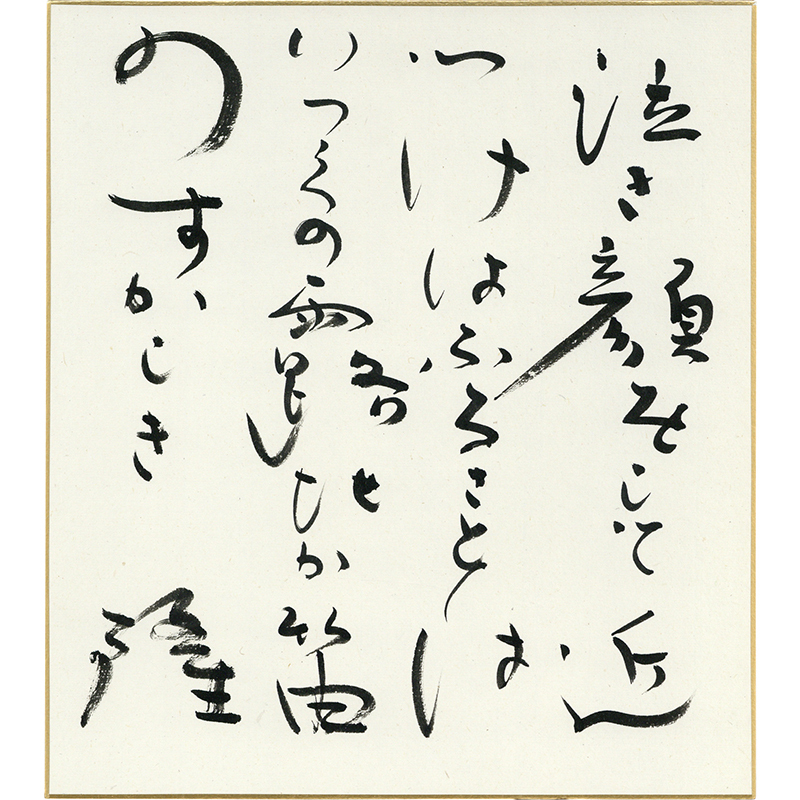 泣き顔をして近
つけはふるさとは
いつくの露地か笛
のすかしき
隆